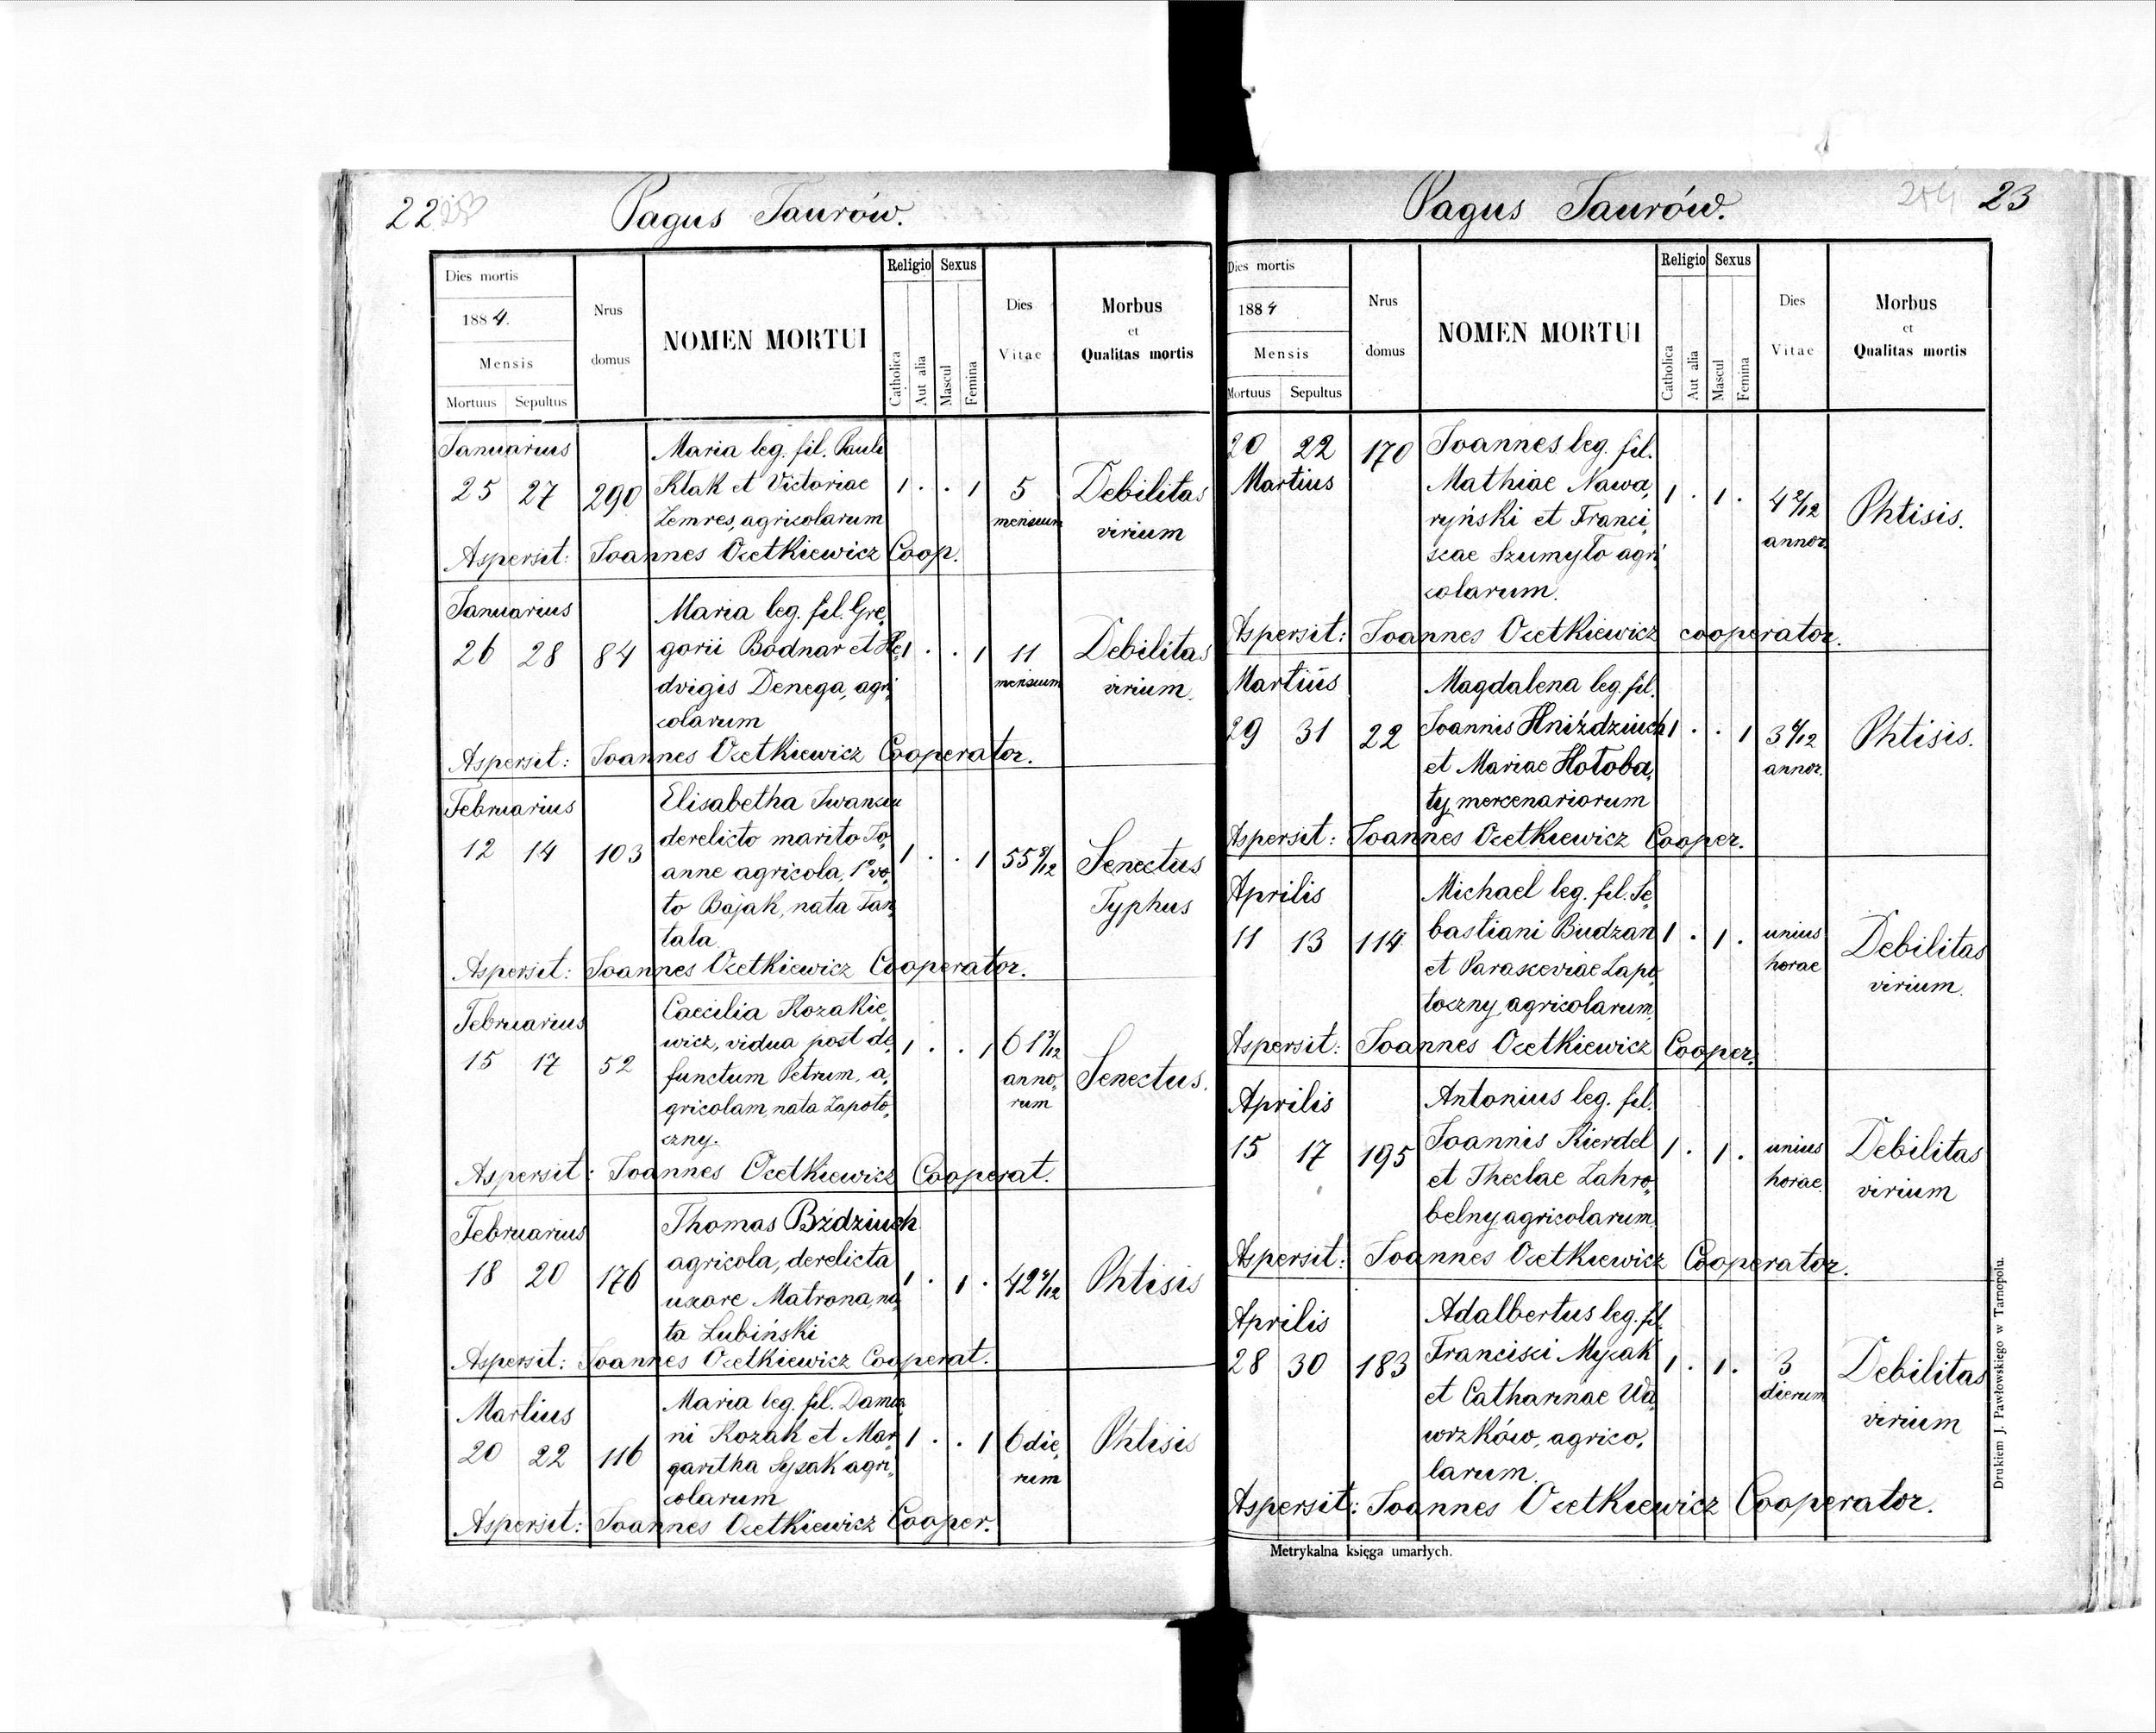 22
Pagus Taurów.
Dies mortis
1884.
Mensis
Mortuus Sepultus
Nrus
domus
NOMEN MORTUI
Religio
Catholica
Aut alia
Sexus
Mascul
Femina
Dies
Vitae
Morbus
et
Qualitas mortis
Januarius
25 27 290
Maria leg. fil. Pauli
Kłak et Victoriae
Zemres, agricolarum
1 . . 1
5
mensium
Debilitas
virium
Aspersit: Joannes Ocetkiewicz Coop.
Januarius
26 28 84
Maria leg. fil. Gre,
gorii Bodnar et He,
dvigis Denega, agri,
colarum
1 . . 1
11
mensium
Debilitas
virium.
Aspersit: Joannes Ocetkiewicz Cooperator.
Februarius
12 14 103
Elisabetha
derelicto marito Jo,
anne agricola, 1º vo,
to Bajak, nata Tan,
tala.
1 . . 1
Senectus
Typhus
Aspersit: Joannes Ocetkiewicz Cooperator.
Februarius
15 17 52
Caecilia Kozakie,
wicz, vidua post de,
functum Petrum, a,
gricolam, nata Zapoto,
czny.
1 . . 1
anno,
rum
Senectus.
Aspersit: Joannes Ocetkiewicz Cooperat.
Februarius
18 20 176
Thomas Bździuch
agricola, derelicta
uxore Matrona, na,
ta Lubiński
1 . 1 .
Phtisis
Aspersit: Joannes Ocetkiewicz Cooperat.
Martius
20 22 116
Maria leg. fil. Damia,
ni Kozak et Mar,
garitha Sysak agri,
colarum
1 . . 1
6 die,
rum
Phtisis
Aspersit: Joannes Ocetkiewicz Cooper.
23
Pagus Taurów.
Dies mortis
1884
Mensis
Mortuus Sepultus
Nrus
domus
NOMEN MORTUI
Religio
Catholica
Aut alia
Sexus
Mascul
Femina
Dies
Vitae
Morbus
et
Qualitas mortis
20 22 170
Martius
Joannes leg. fil.
Mathiae Nawa,
ryński et Franci,
scae Szumyło agri,
colarum.
1 . 1 .
4 2/12
annor.
Phtisis.
Aspersit: Joannes Ocetkiewicz cooperator.
Martius
29 31 22
Magdalena leg. fil.
Joannis Hniździuch
et Mariae Hołoba,
ty, mercenariorum
1 . . 1
annor.
Phtisis.
Aspersit: Joannes Ocetkiewicz Cooper.
Aprilis
11 13 114
Michael leg. fil. Se,
bastiani Budzan
et Parasceviae Zapo,
toczny, agricolarum,
1 . 1 .
unius
horae
Debilitas
virium.
Aspersit: Joannes Ocetkiewicz Cooper.
Aprilis
15 17 195
Antonius leg. fil.
Joannis Kierdel
et Theclae Zahro,
belny, agricolarum,
1 . 1 .
unius
horae.
Debilitas
virium
Aspersit: Joannes Ocetkiewicz Cooperator.
Aprilis
28 30 183
Adalbertus leg. fil.
Francisci Myzak
et Catharinae Wa,
wrzków, agrico,
larum.
1 . 1 .
3
dierum
Debilitas
virium
Aspersit: Joannes Ocetkiewicz Cooperator.
Metrykalna księga umarłych.
Drukiem J. Pawłowskiego w Tarnopolu.